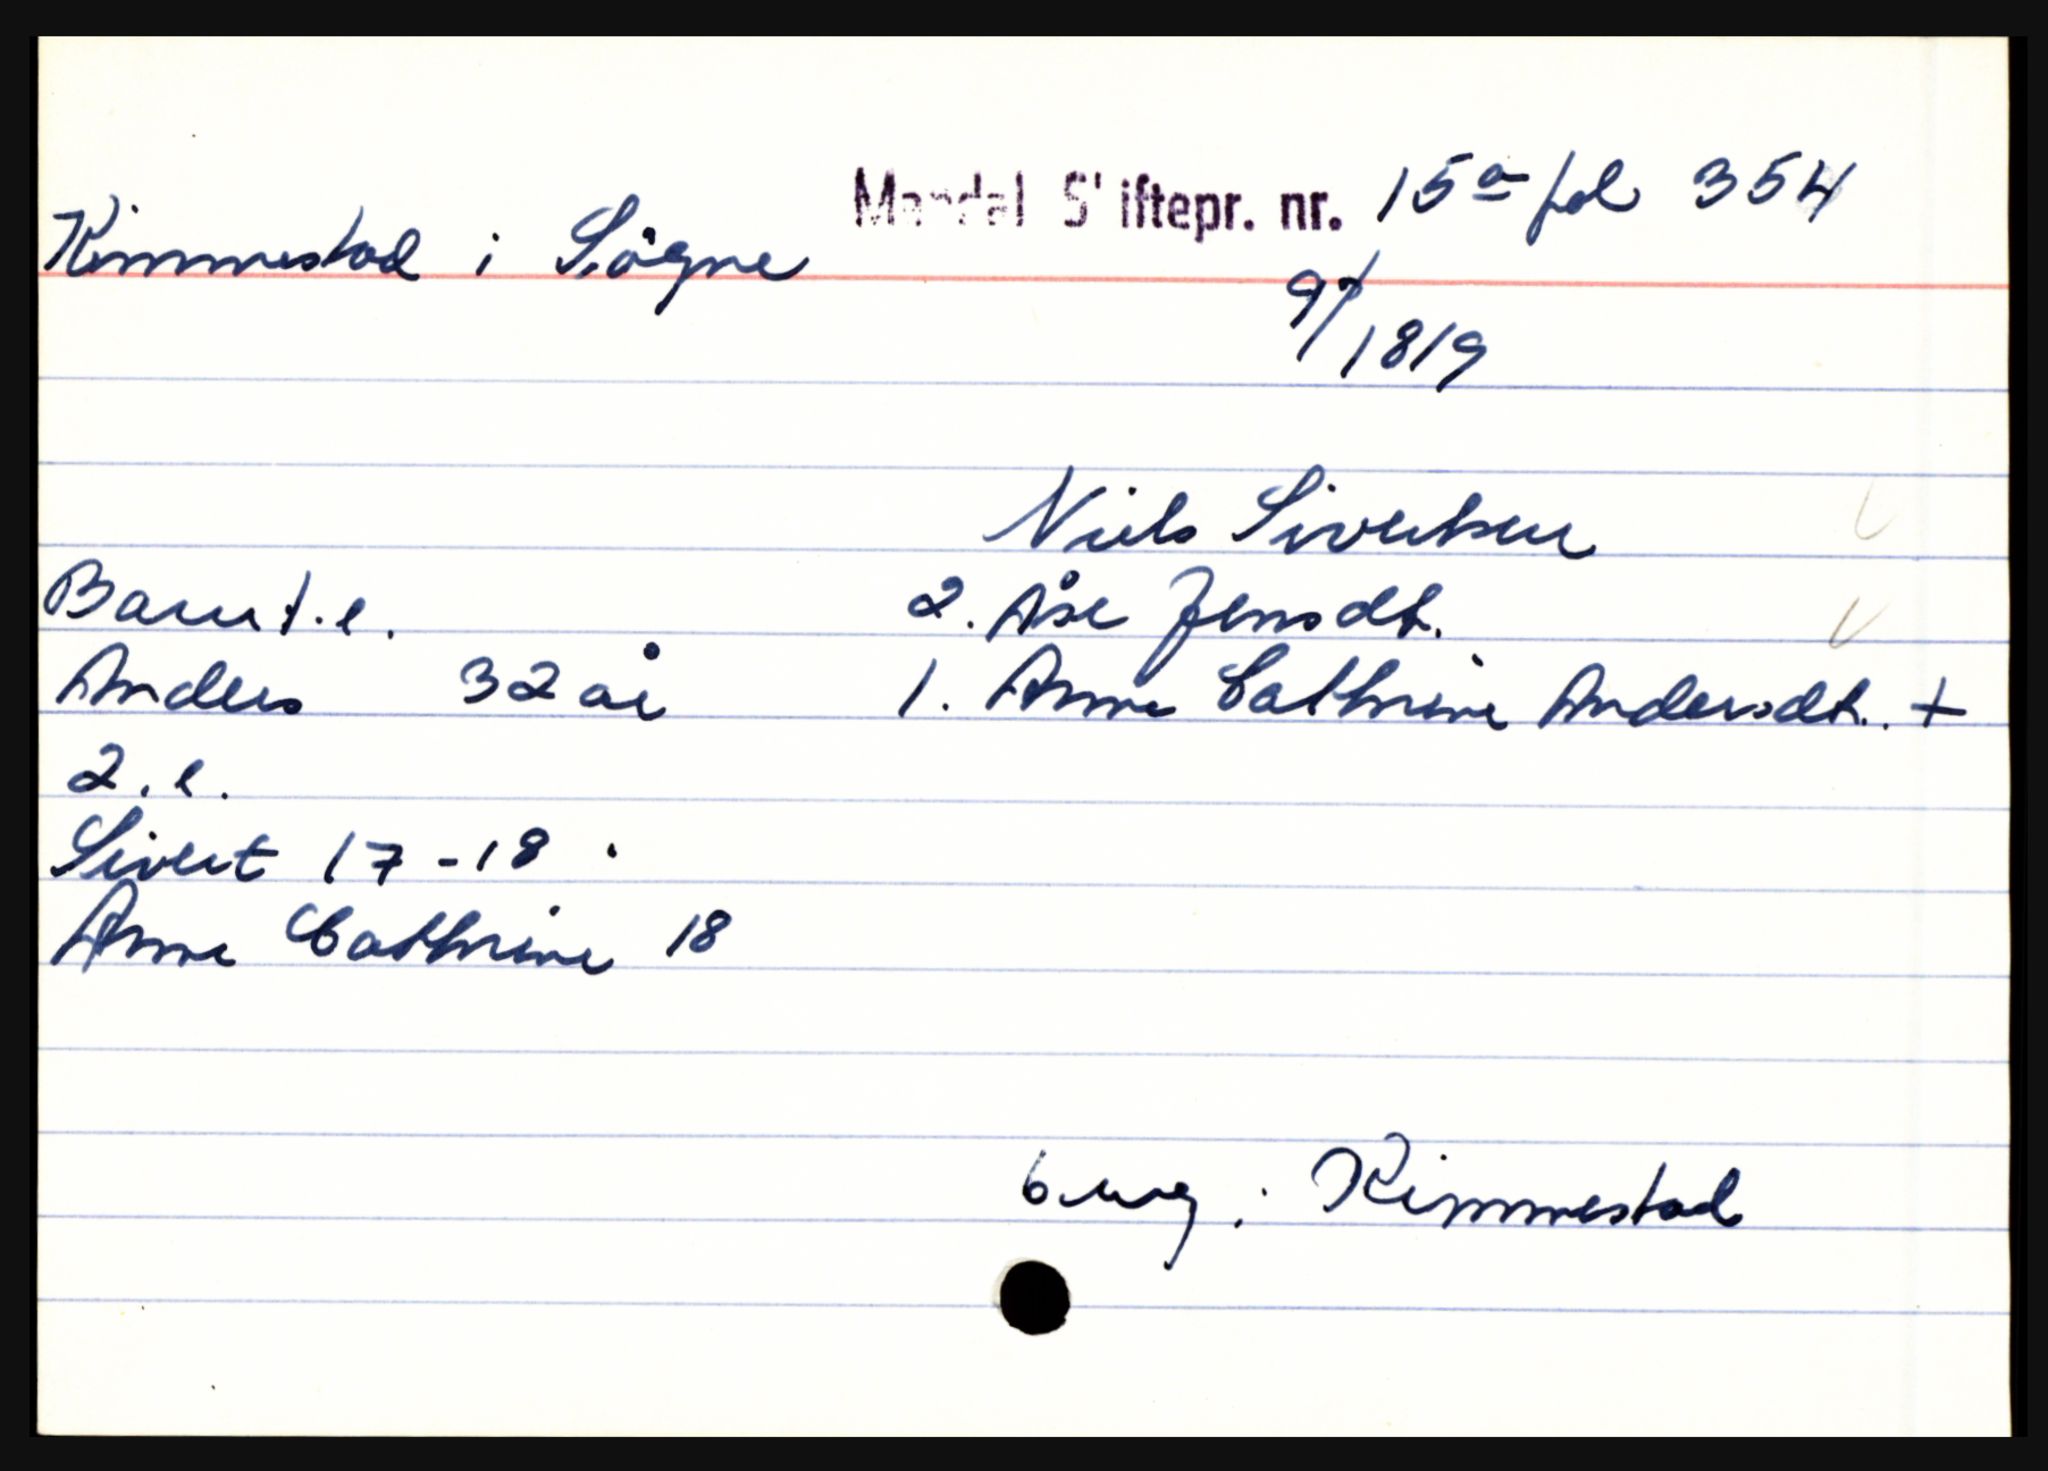 Mandal Skiftepr. nr. 15a fol 354
Kimmestad i Søgne
9/7 1819
Niels Sivertsen
Barn 1.e. 2. Åse Jensdt.
Anders 32 år 1. Anne Cathrine Andersdt. +
2.e.
Sivert 17-18
Anne Cathrine 18
6 umg: Kimmestad